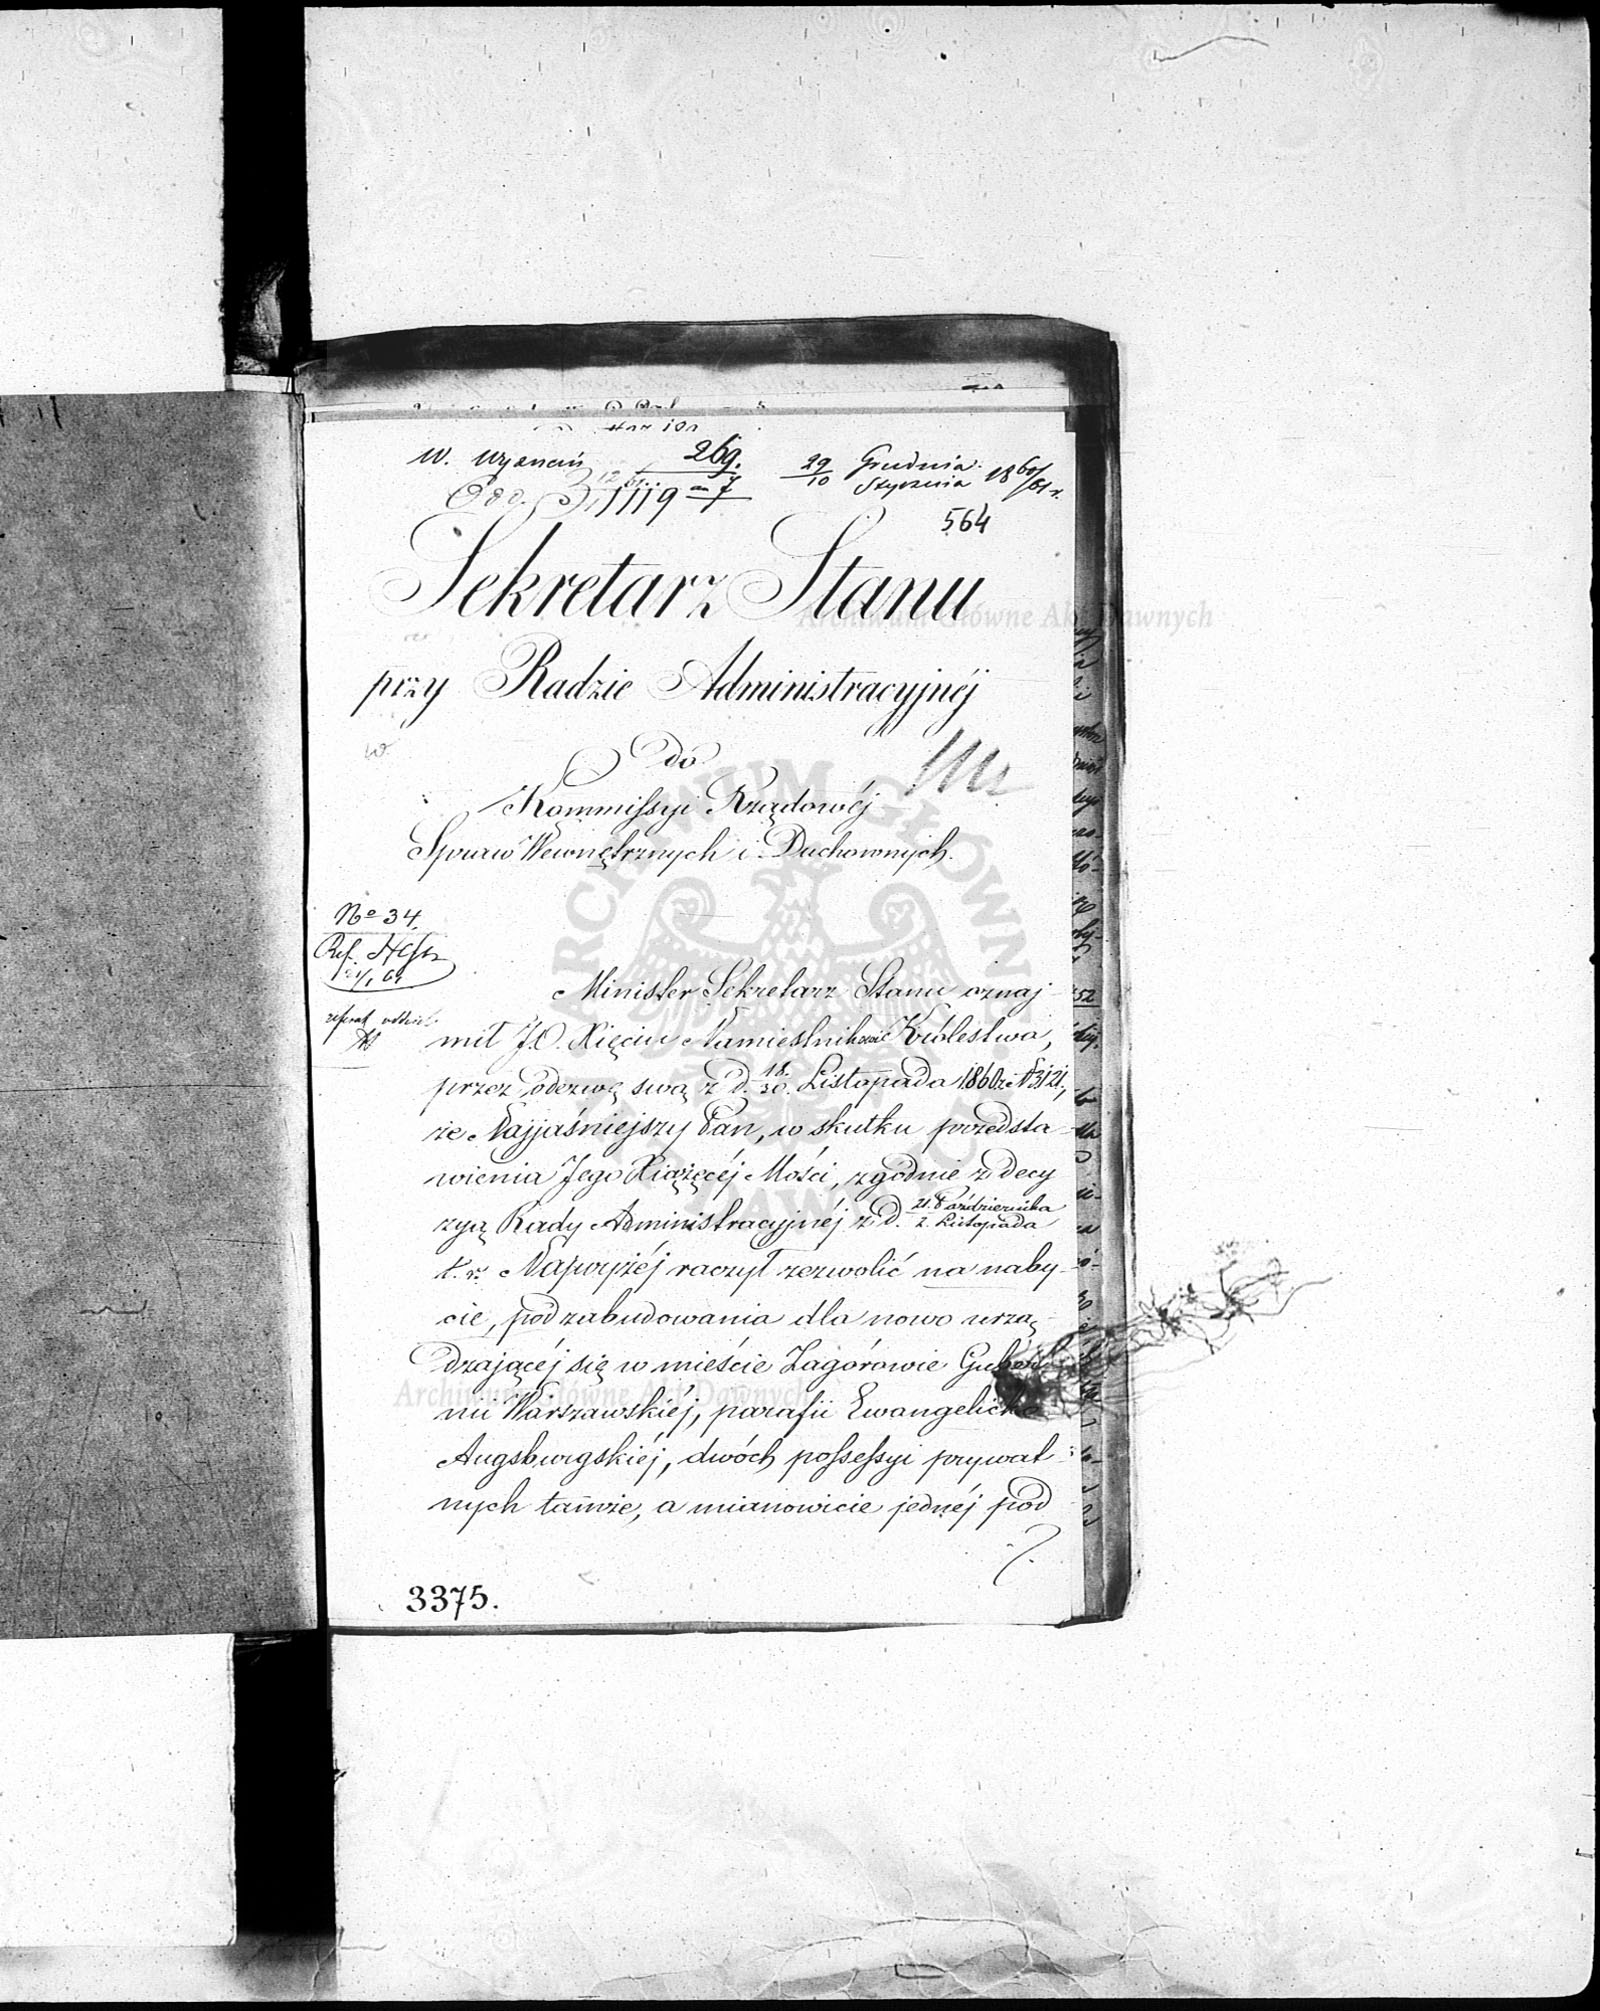 W. Wyznań 269. 29/10 Grudnia/Stycznia 1860/61 r.
12/1 61.
Odd. 3, 1119 7
564
Sekretarz Stanu
przy Radzie Administracyjnéj
do
Kommissyi Rządowéj
Spraw Wewnętrznych i Duchownych.
No 34.
Ref.
Minister Sekretarz Stanu oznaj-
mił J.O. Xięciu Namiestnikowi Królestwa,
przez odezwę swą z d. 18/30 Listopada 1860 r. N 3121,
że Najjaśniejszy Pan, w skutku przedsta-
wienia Jego Xiążęcéj Mości, zgodnie z decy
zyą Rady Administracyjnéj z d. 21 Października/2 Listopada
t. r. Najwyżéj raczył zezwolić na naby-
cie, pod zabudowania dla nowo urzą-
dzającéj się w mieście Zagórowie Guber
nii Warszawskiéj, parafii Ewangelicko
Augsburgskiéj, dwóch possessyi prywat-
nych tamże, a mianowicie jednéj pod
./.
3375.
Archiwum Główne Akt Dawnych
Archiwum Główne Akt Dawnych
ARCHIWUM GŁÓWNE AKT DAWNYCH